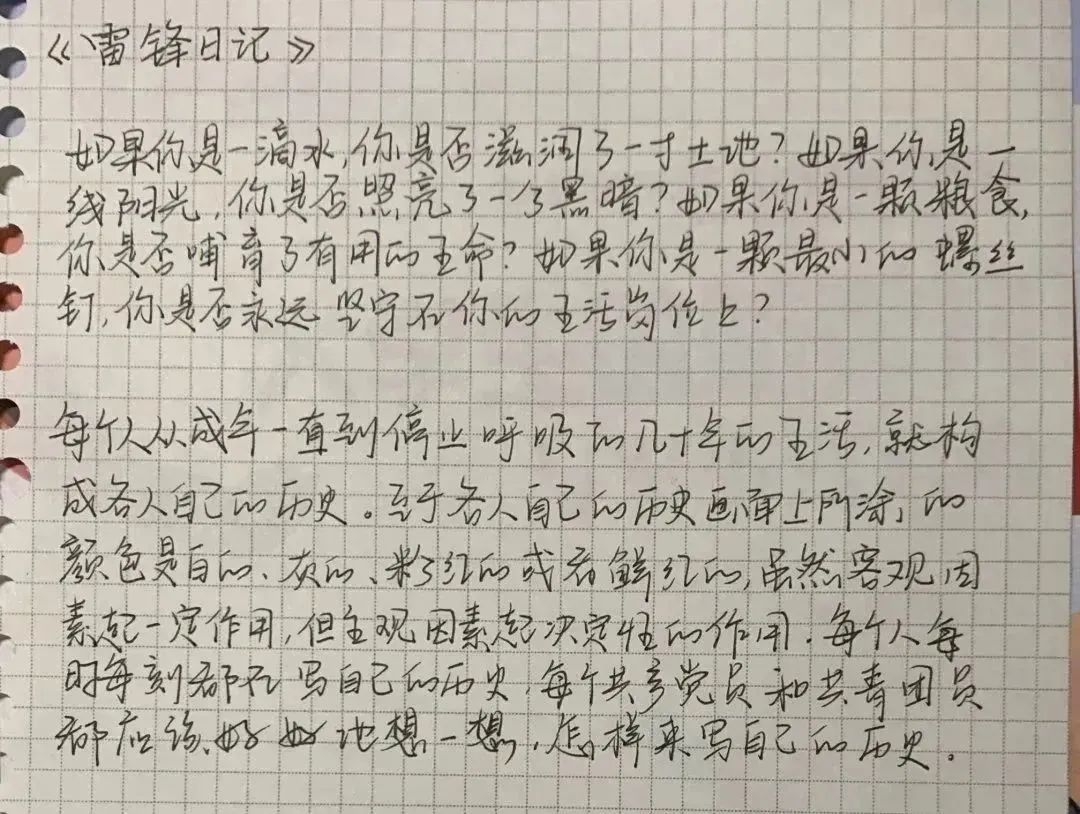 《雷锋日记》
如果你是一滴水,你是否滋润了一寸土地?如果你是一
线阳光,你是否照亮了一分黑暗?如果你是一颗粮食,
你是否哺育了有用的生命?如果你是一颗最小的螺丝
钉,你是否永远坚守在你的生活岗位上?
每个人从成年一直到停止呼吸的几十年的生活,就构
成各人自己的历史。至于各人自己的历史画面上所涂的
颜色是白的、灰的、粉红的或者鲜红的,虽然客观因
素起一定作用,但主观因素起决定性的作用.每个人每
时每刻都在写自己的历史,每个共产党员和共青团员
都应该好好地想一想,怎样来写自己的历史.